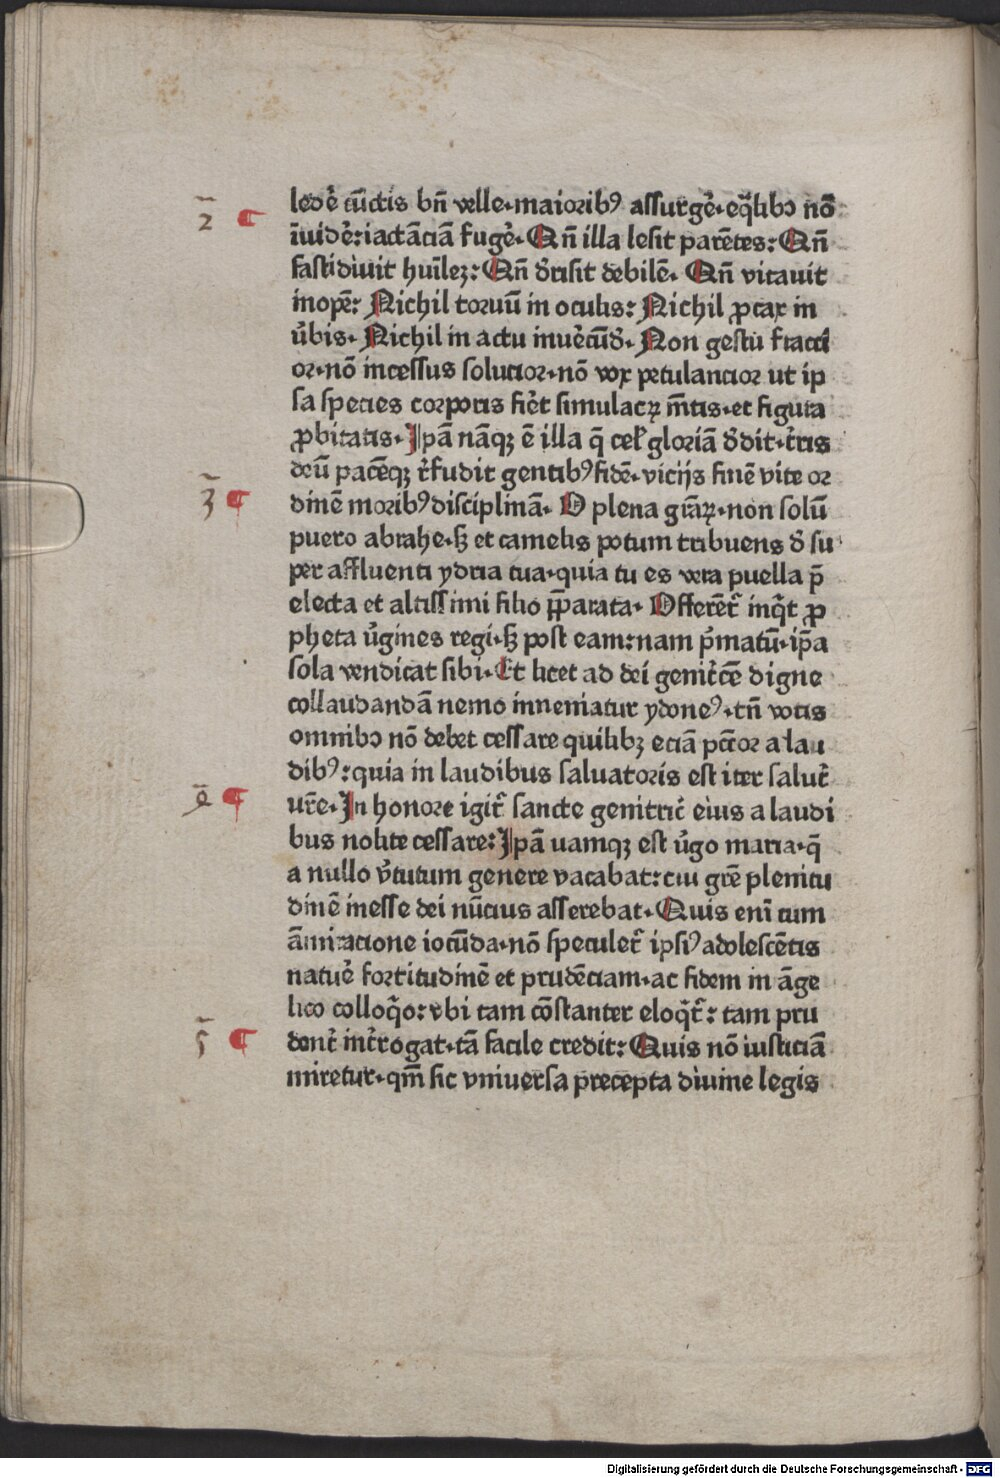 ledẻ cūctis bn̄ velle·maioribꝰ assurgẻ·eq̄libꝫ nō
2 ¶
īuidẻ:iactācīā fugẻ·Qn̄ illa lesit parētes:Qn̄
fastidiuit huīlez:Qn̄ d̓risit debilē·Qn̄ vitauit
inopē:Nichil toruū in oculis:Nichil ꝓcax in
v̓bis·Nichil in actu inuẻcūd̓·Non gestu fracti
or·nō incessus solucior·nō vox petulancior ut ip
sa species corporis fiẻt simulacꝝ mētis·et figura
ꝓbitatis·Ipā nāqꝫ ē illa q̄ cel̓ gloriā d̓dit·t̓ris
deū pacēqꝫ r̓fudit gentibꝰ fidē·vicijs finē vite or
3 ¶
dinē moribꝰ disciplinā· O plena grāꝝ·non solū
puero abrahe·sꝫ et camelis potum tribuens d̓ su
per affluenti ydria tua·quia tu es vera puella p̄
electa et altissimi filio p̄parata·Offerēt̓ inq̄t ꝓ
pheta v̓gines regi·sꝫ post eam:nam p̓matū·ip̄a
sola vendicat sibi·Et licet ad dei genit̓cē digne
collaudandā nemo inueniatur ydoneꝰ·tn̄ votis
omnibꝫ nō debet cessare quilibꝫ eciā pctōr a lau
dibꝰ:quia in laudibus saluatoris est iter salut̓
4 ¶
vr̄e·In honore igit̓ sancte genitric̓ eius a laudi
bus nolite cessare:Ipā namqꝫ est v̓go maria·q̄
a nullo v̓tutum genere vacabat:cui gr̄e plenitu
dinē inesse dei nūcius asserebat·Quis enī cum
āmiracione iocūda·nō speculet̓ ipsiꝰ adolescētis
natuẻ fortitudinē et prudēciam·ac fidem in āge
lico colloq̄o:vbi tam cōstanter eloq̄t̓:tam pru
5 ¶
dent̓ int̓rogat·tā facile credit:Quis nō iusticiā
miretur·qm̄ sic vniuersa precepta diuine legis
Digitalisierung gefördert durch die Deutsche Forschungsgemeinschaft - DFG